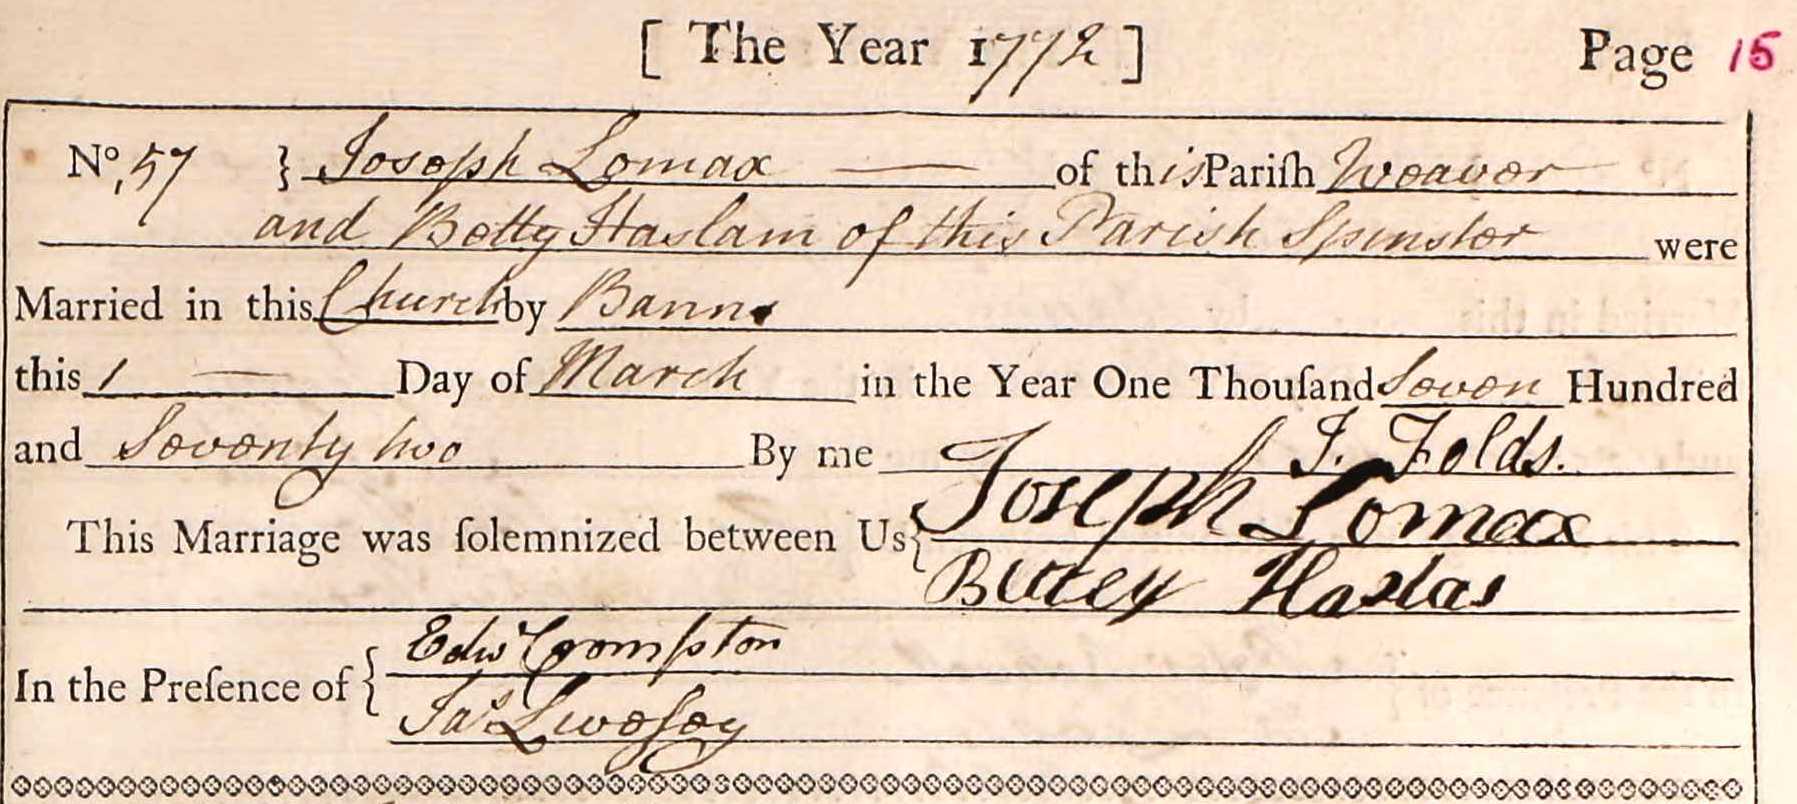 [ The Year 1772 ] Page 15
No. 57 } Joseph Lomax — of this Pariſh Weaver
and Betty Haslam of this Parish Spinster were
Married in this Church by Banns
this 1 — Day of March in the Year One Thouſand Seven Hundred
and Seventy two By me J. Folds.
This Marriage was ſolemnized between Us { Joseph Lomax
Haslas
In the Preſence of { Edwd Crompton
Jas Livesey